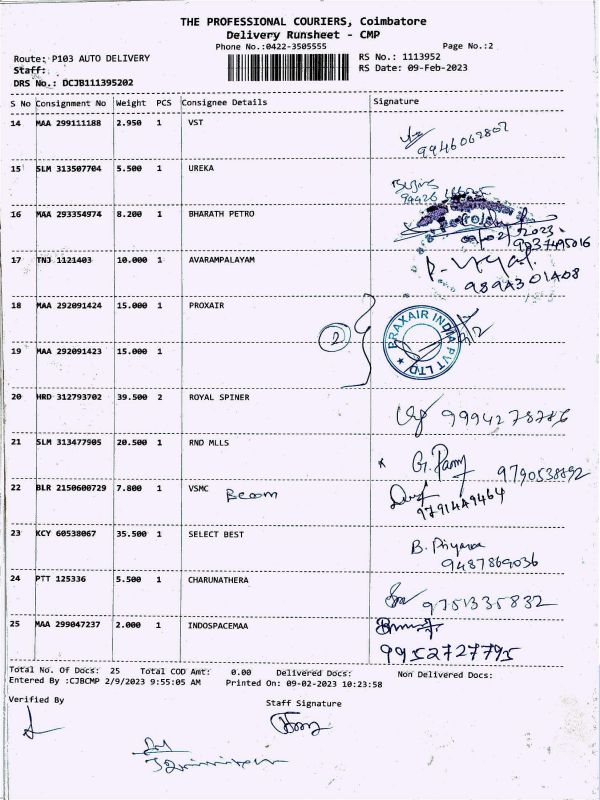 THE PROFESSIONAL COURIERS, Coimbatore
Delivery Runsheet - CMP
Phone No.:0422-3505555
Page No.:2
Route: P103 AUTO DELIVERY
RS No.: 1113952
Staff:
RS Date: 09-Feb-2023
DRS No.: DCJB111395202
S No Consignment No Weight PCS Consignee Details Signature
14 MAA 299111188 2.950 1 VST
9946062807
15 SLM 313507704 5.500 1 UREKA
16 MAA 293354974 8.200 1 BHARATH PETRO
09/02/2023
9037495016
17 TNJ 1121403 10.000 1 AVARAMPALAYAM
9894301408
18 MAA 292091424 15.000 1 PROXAIR
2
BRAXAIR INDIA PVT LTD
19 MAA 292091423 15.000 1
20 HRD 312793702 39.500 2 ROYAL SPINER
9994278786
21 SLM 313477905 20.500 1 RND MLLS
9790538892
22 BLR 2150600729 7.800 1 VSMC Beom
9791449464
23 KCY 60538067 35.500 1 SELECT BEST
B. Priyanka
9487869036
24 PTT 125336 5.500 1 CHARUNATHERA
9751335832
25 MAA 299047237 2.000 1 INDOSPACEMAA
9952727795
Total No. Of Docs: 25 Total COD Amt: 0.00 Delivered Docs: Non Delivered Docs:
Entered By :CJBCMP 2/9/2023 9:55:05 AM Printed On: 09-02-2023 10:23:58
Verified By
Staff Signature